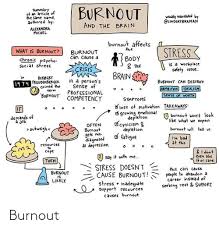 Summary
of an article of
the same name,
authored by:
ALEXANDRA
MICHEL
BURNOUT
AND THE BRAIN
visually translated by
@LINDSAYBRAMAN
WHAT IS BURNOUT?
chronic psycho-
social stress
HERBERT
FREUDENBERGER
coined the
term
BURNOUT
1975
BURNOUT
can cause a
CRISIS
in a person's
sense of
PROFESSIONAL
COMPETENCY
burnout affects
the
BODY
& the
BRAIN
STRESS
is a workplace
safety issue.
BURNOUT CAN DESTROY
SENSE OF WORTH
IF
demands of
a job
outweighs
resources
to
cope
THEN
BURNOUT
is
likely
OFTEN
Burnout
gets mis-
diagnosed
as depression.
SYMPTOMS
loss of motivation
growing emotional
depletion
cynicism &
depression
fatigue
TAKEAWAYS
burnout won't look
like what we expect
burnout will tell us
I'm bad
at this
I don't
even like
this job
say it with me...
STRESS DOESN'T
CAUSE BURNOUT!
stress + inadequate
support resources
causes burnout